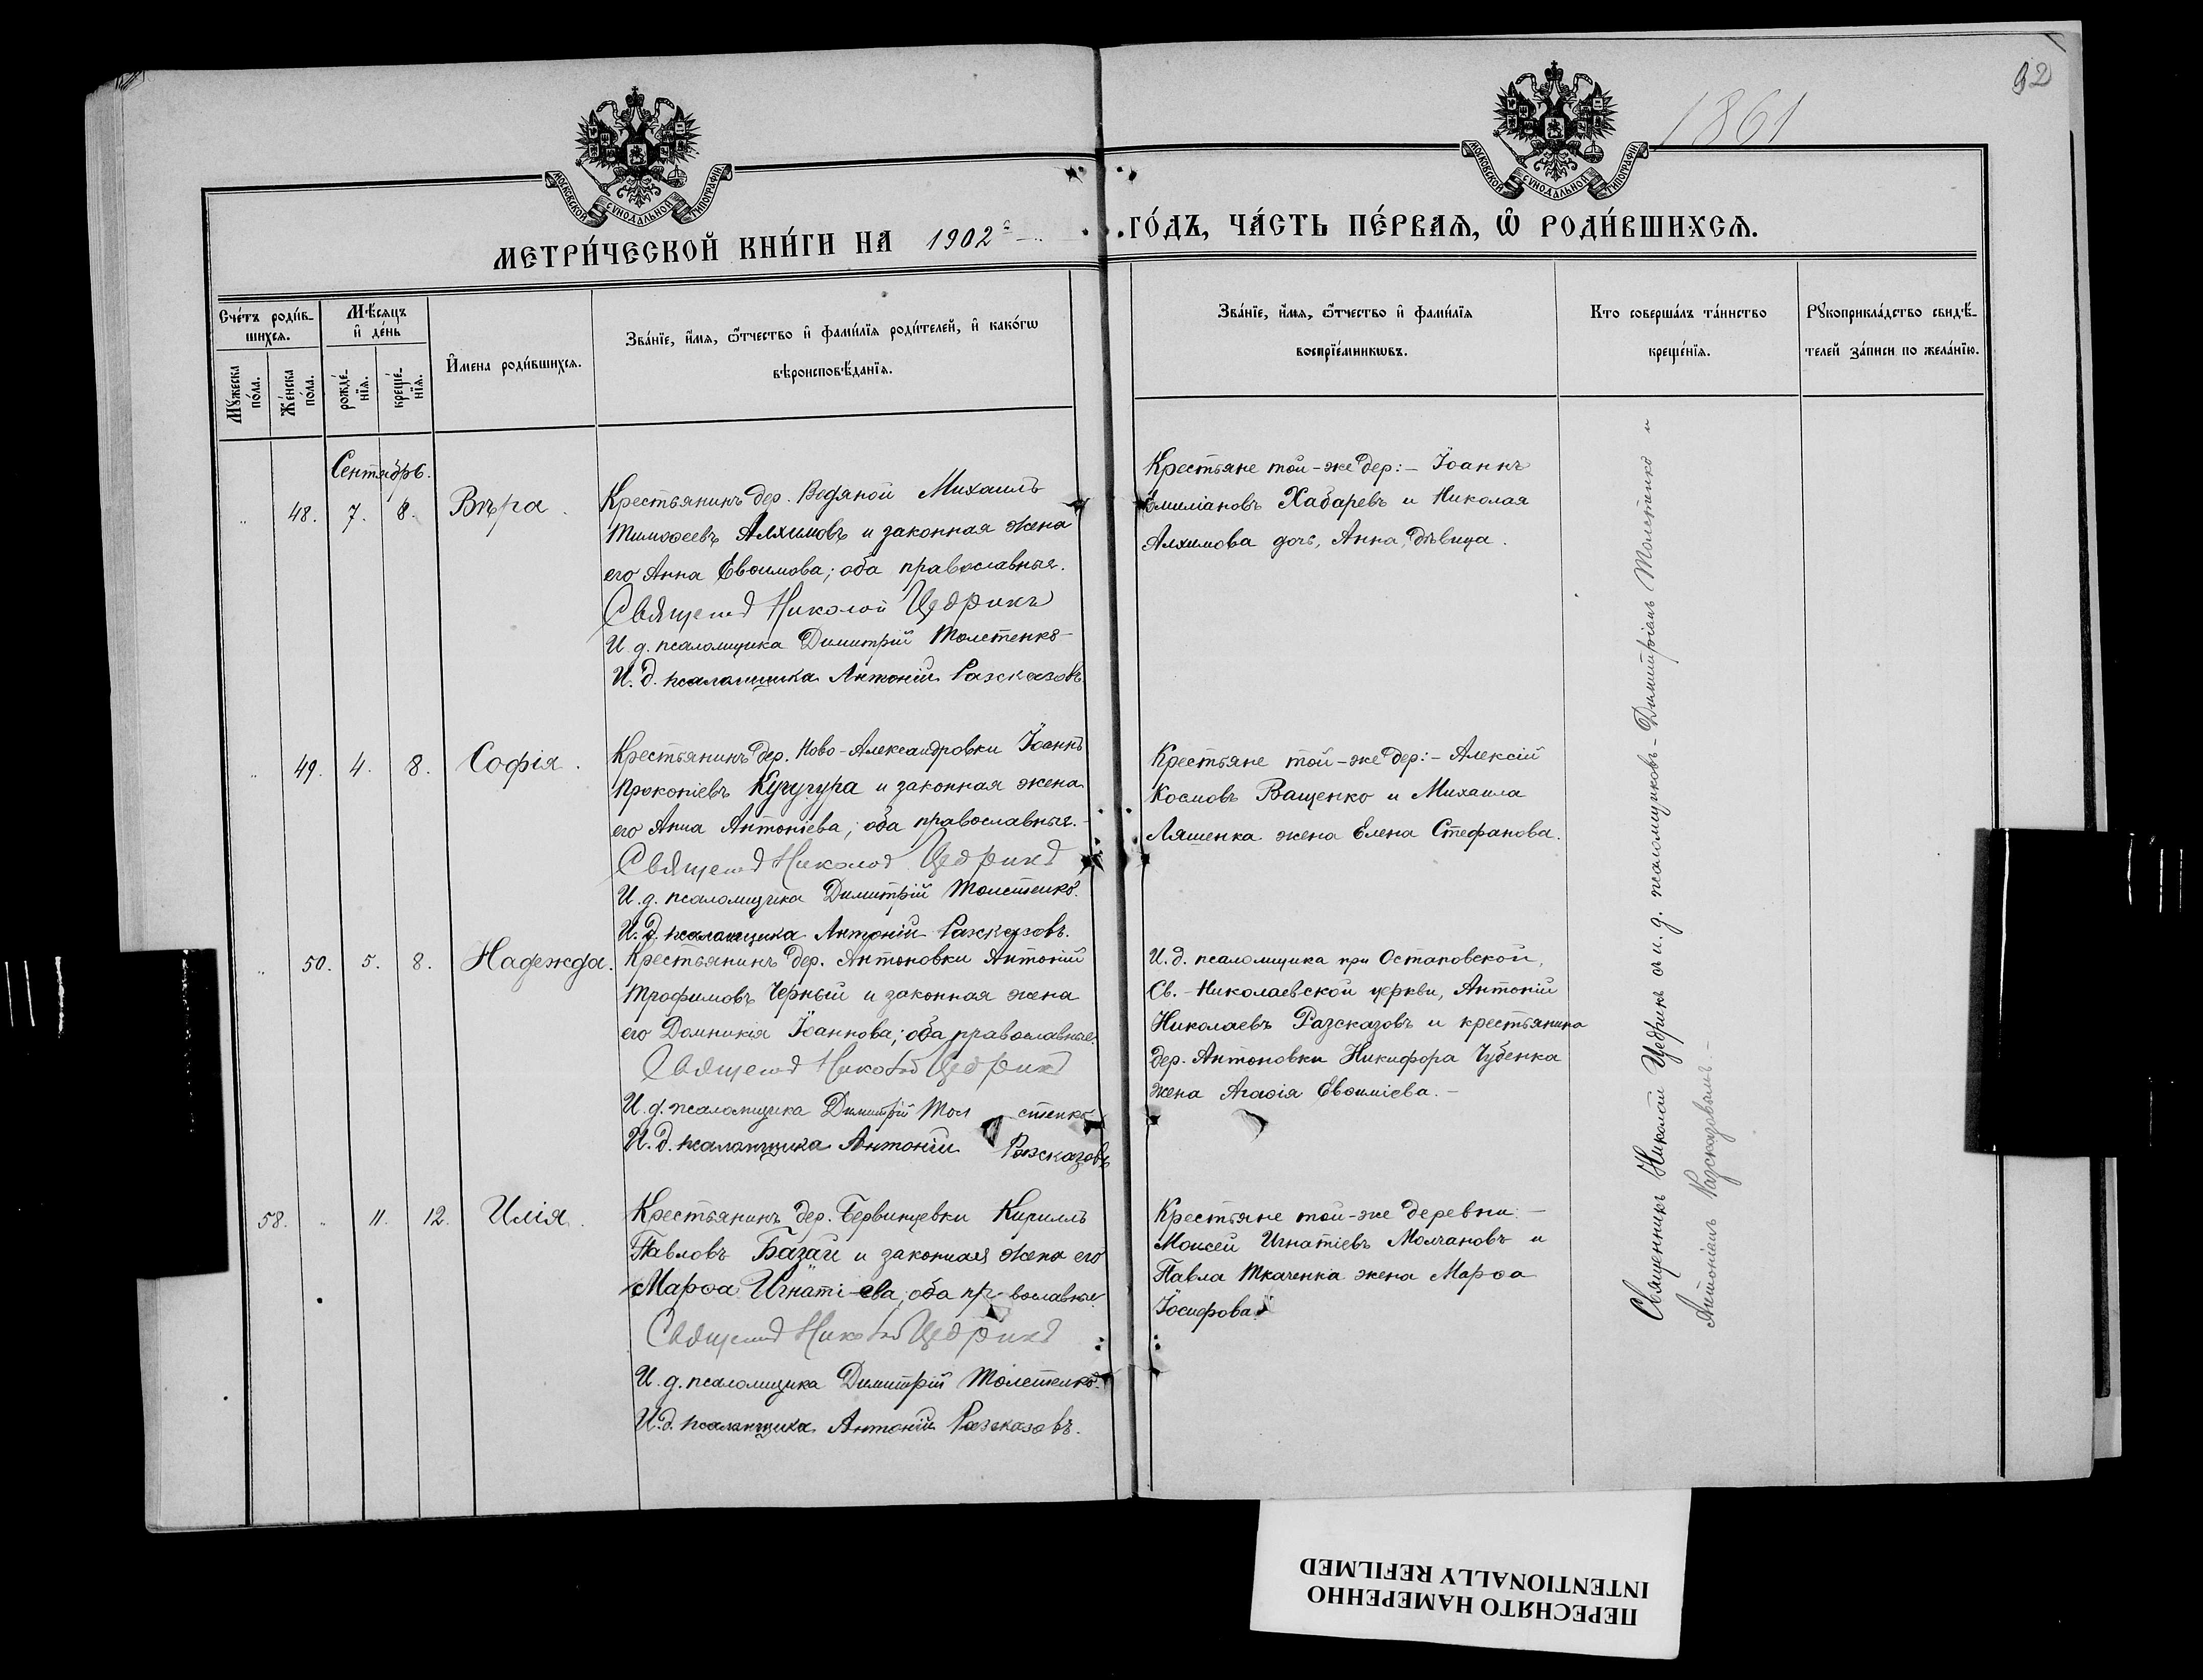 92
1861
МОСКОВСКОЙ СѴНОДАЛЬНОЙ ТИПОГРАФІИ
МОСКОВСКОЙ СѴНОДАЛЬНОЙ ТИПОГРАФІИ
МЕТРИ́ЧЕСКОЙ КНИ́ГИ НА 1902й ГО́ДЪ, ЧА́СТЬ ПЕ́РВАѦ, Ѡ҆ РОДИ́ВШИХСѦ.
Сче́тъ роди́в-
шихсѧ.
Мѣ́сѧцъ
и҆ де́нь
Мꙋ́жеска
по́ла.
Же́нска
по́ла.
рожде́-
нїѧ.
креще́-
нїѧ.
И҆мена роди́вшихсѧ.
Зва́нїе, и҆́мѧ, ѻ҆́тчество и҆ фами́лїѧ роди́телей, и҆ како́гѡ
вѣроисповѣ́данїѧ.
Зва́нїе, и҆́мѧ, ѻ҆́тчество и҆ фами́лїѧ
воспрїе́мникѡвъ.
Кто соверша́лъ та́инство
креще́нїѧ.
Рꙋкоприкла́дство свидѣ́-
телей за́писи по жела́нїю.
Сентябрь.
" 48. 7. 8. Вѣра.
Крестьянинъ дер. Водяной Михаилъ
Тимоѳеевъ Алхимовъ и законная жена
его Анна Евѳимова; оба православные.
Священ Николай Цедрикъ
И. д. псаломщика Димитрій Толстенко
И. д. псаломщика Антоній Разсказовъ
Крестьяне той-же дер:- Іоаннъ
Емиліановъ Хабаревъ и Николая
Алхимова дочь, Анна, дѣвица.
" 49. 4. 8. Софія.
Крестьянинъ дер. Ново-Александровки Іоаннъ
Прокопіевъ Кучугура и законная жена
его Анна Антоніева; оба православные.-
Священ Николай Цедрикъ
И. д. псаломщика Димитрій Толстенко.
И. д. псаломщика Антоній Разсказовъ.
Крестьяне той-же дер:- Алексій
Космовъ Ващенко и Михаила
Ляшенка жена Елена Стефанова.
" 50. 5. 8. Надежда.
Крестьянинъ дер. Антоновки Антоній
Трофимовъ Черный и законная жена
его Домникія Іоаннова; оба православные.
Священ Николай Цедрикъ
И. д. псаломщика Димитрій Толстенко
И. д. псаломщика Антоній Разсказовъ
И. д. псаломщика при Остаповской,
Св.-Николаевской церкви, Антоній
Николаевъ Разсказовъ и крестьянина
дер. Антоновки Никифора Чубенка
жена Агаѳія Евѳиміева.-
58. " 11. 12. Илія.
Крестьянинъ дер. Бервинцевки Кириллъ
Павловъ Базай и законная жена его
Марѳа Игнатіева; оба православные.
Священ Николай Цедрикъ
И. д. псаломщика Димитрій Толстенко.
И. д. псаломщика Антоній Разсказовъ.
Крестьяне той-же деревни:-
Моисей Игнатіевъ Молчановъ и
Павла Ткаченка жена Марѳа
Іосифова
Священникъ Николай Цедрикъ съ и. д. псаломщиковъ - Димитріемъ Толстенко и
Антоніемъ Разсказовымъ.-
ПЕРЕСНЯТО НАМЕРЕННО
INTENTIONALLY REFILMED